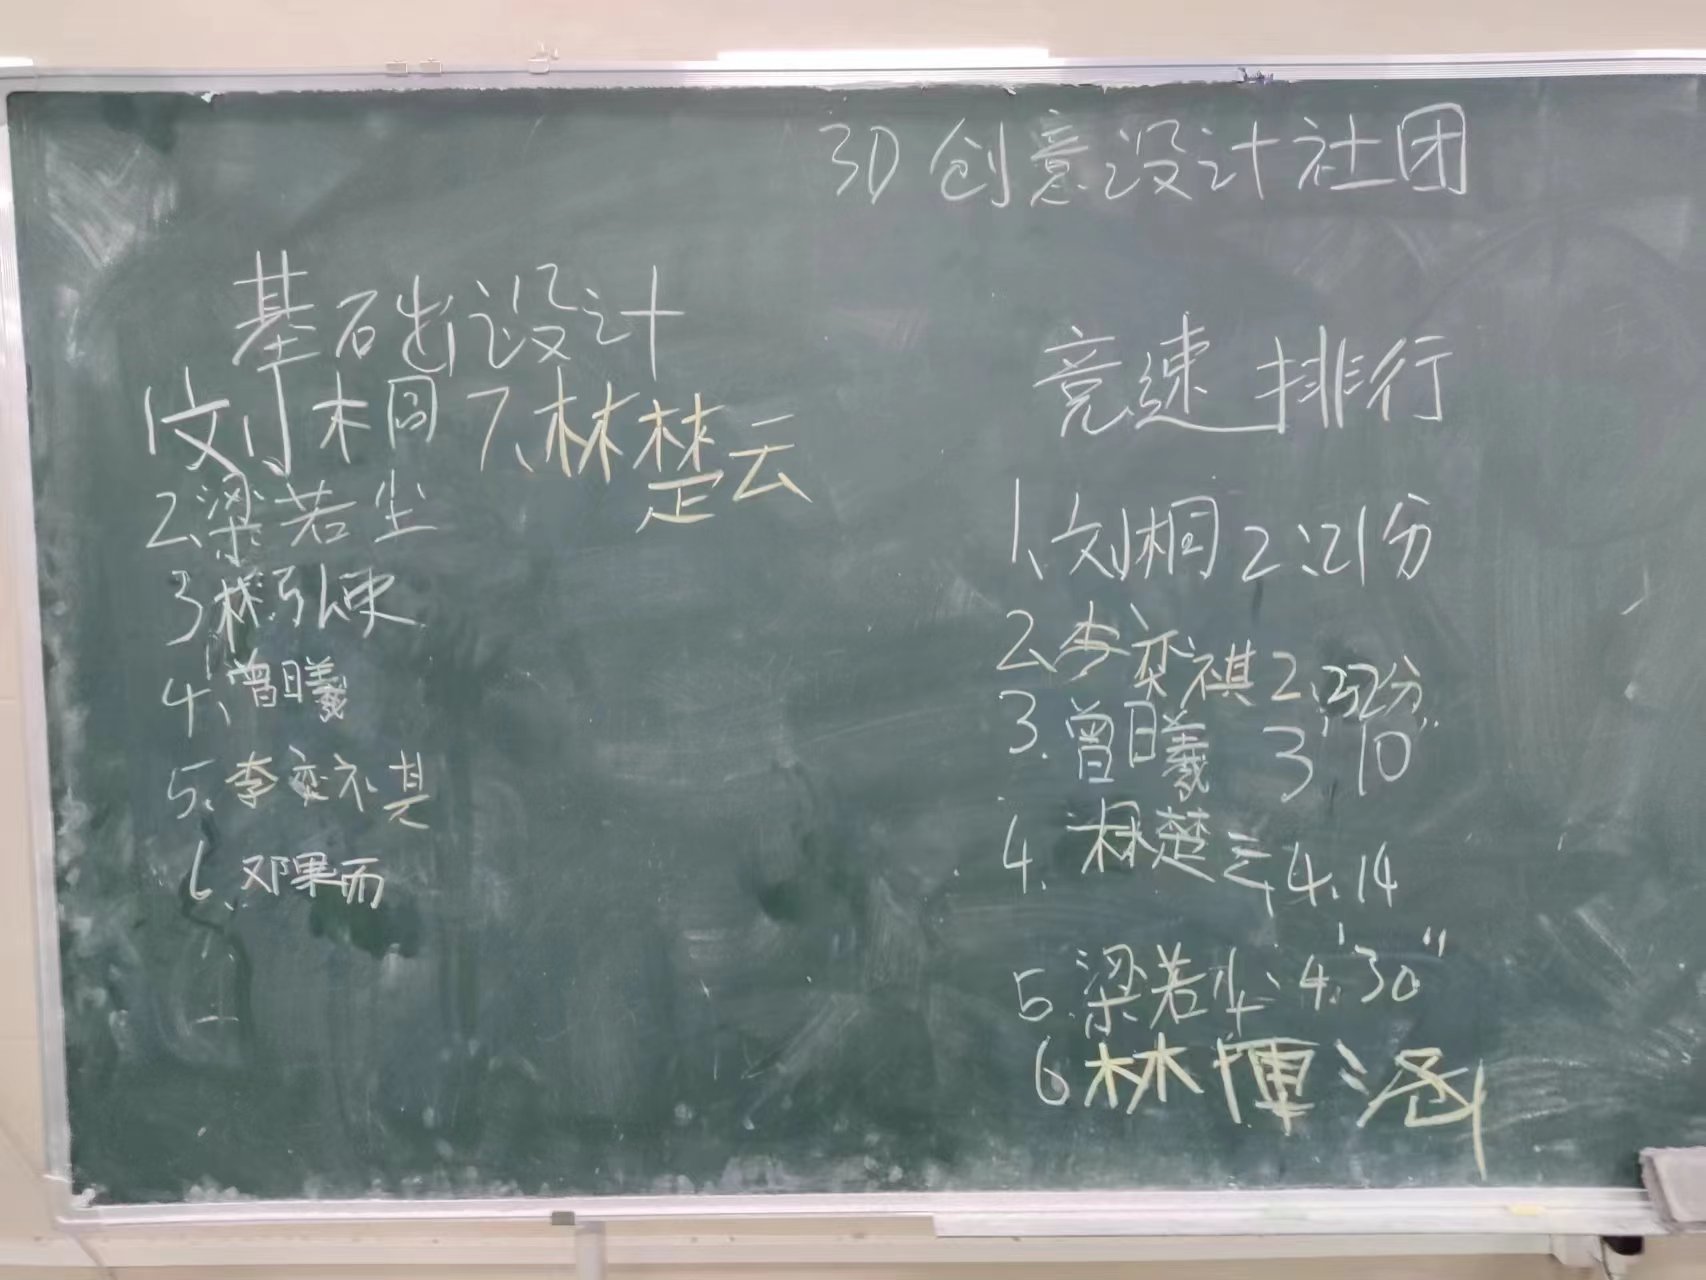 3D创意设计社团
基础设计
1刘桐 7、林楚云
2、梁若尘
3林弘
4、曾曦
5、李奕祺
6、邓果而
竞速排行
1、刘桐 2:21分
2、李奕祺 2、32分
3.曾曦 3'10"
4.林楚云 4.14
5.梁若尘 4'30"
6林恽